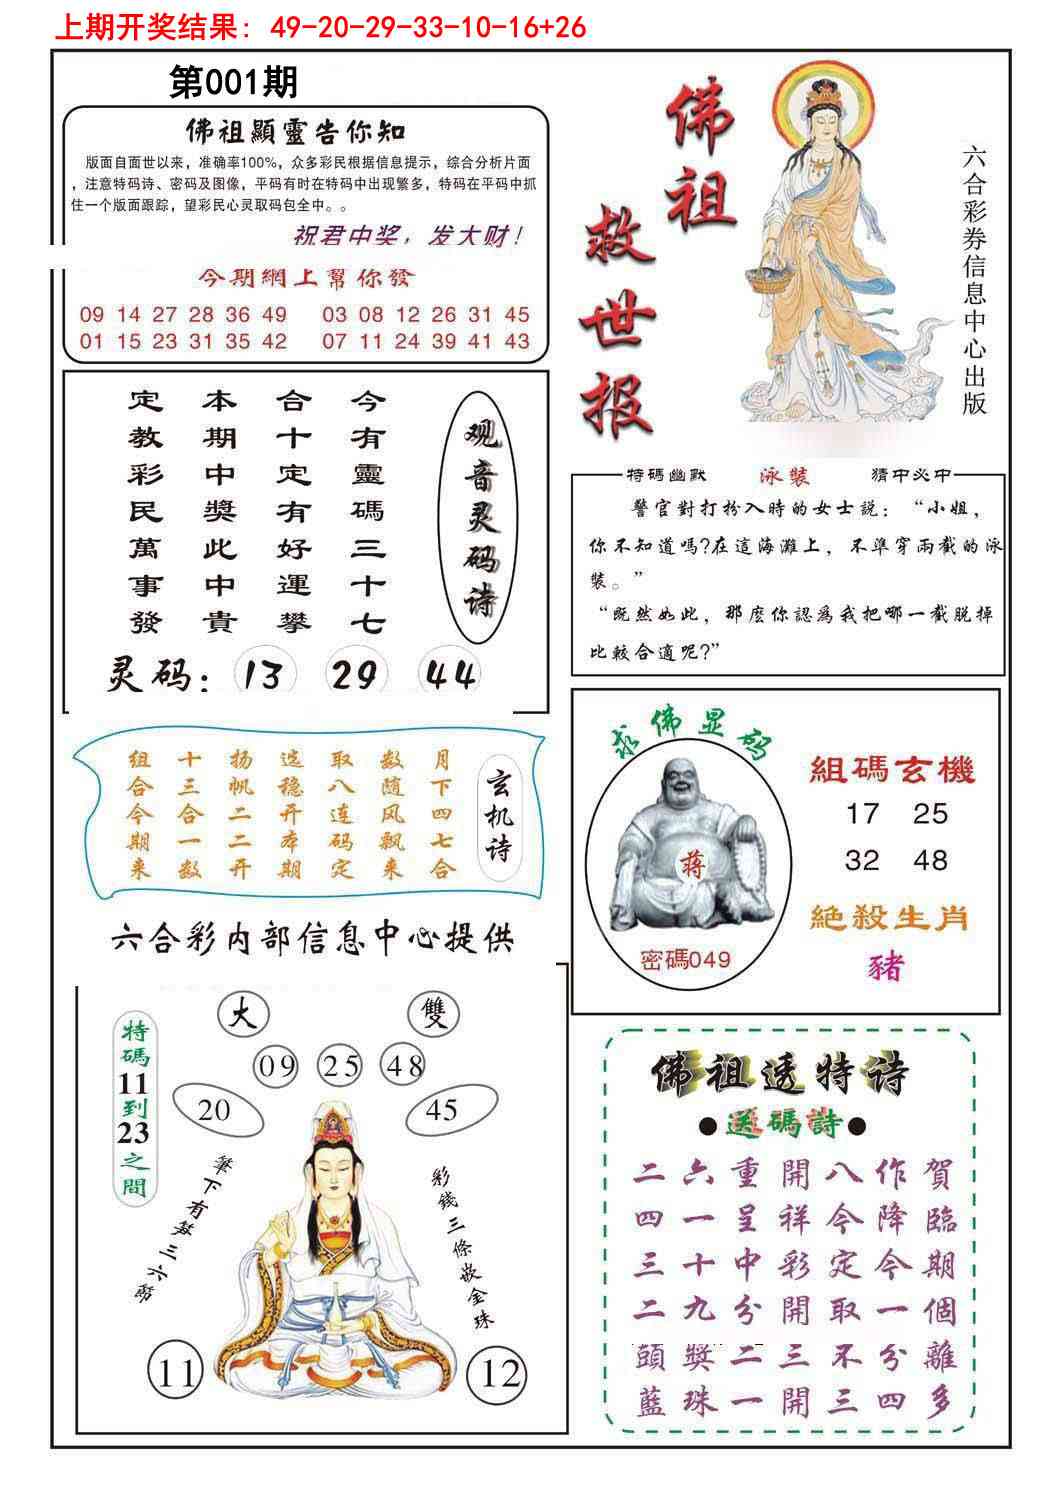 上期开奖结果：49-20-29-33-10-16+26
第001期
佛祖顯靈告你知
版面自面世以来，准确率100%，众多彩民根据信息提示，综合分析片面
，注意特码诗、密码及图像，平码有时在特码中出现繁多，特码在平码中抓
住一个版面跟踪，望彩民心灵取码包全中。。
祝君中奖，发大财！
今期網上幫你發
09 14 27 28 36 49 03 08 12 26 31 45
01 15 23 31 35 42 07 11 24 39 41 43
佛祖
救世报
六合彩券信息中心出版
观音灵码诗
今有靈碼三十七
合十定有好運攀
本期中獎此中貴
定教彩民萬事發
灵码：13 29 44
特碼幽默 泳裝 猜中必中
警官對打扮入時的女士説：“小姐，
你不知道嗎?在這海灘上，不準穿兩截的泳
裝。”
“既然如此，那麽你認爲我把哪一截脱掉
比較合適呢?”
玄机诗
月下四七合
数随风飘来
取八连码定
选稳开本期
扬帆二二开
十三合一数
组合今期来
六合彩内部信息中心提供
求佛显码
蒋
密碼049
組碼玄機
17 25
32 48
絶殺生肖
豬
大 雙
09 25 48
20 45
特碼11到23之間
筆下有梦三六節
彩錢三條嵌金珠
11 12
佛祖透特诗
●送碼詩●
賀臨期個離多
作降今一分四
八今定取不三
開祥彩開三開
重呈中分二一
六一十九獎珠
二四三二頭藍